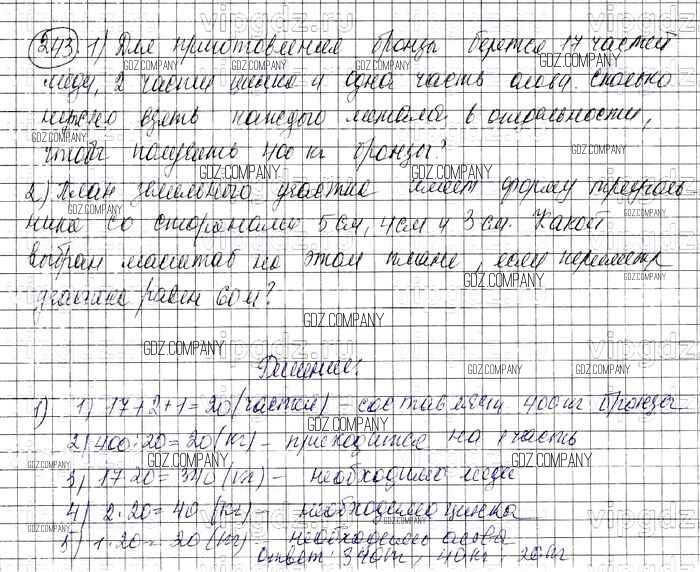 243. 1) Для приготовления бронзы берется 17 частей
меди, 2 части цинка и одна часть олова. Сколько
нужно взять каждого металла в отдельности,
чтобы получить 400 кг бронзы?
2.) План земельного участка имеет форму треуголь-
ника со сторонами 5 см, 4 см и 3 см. Какой
выбран масштаб на этом плане, если периметр
участка равен 60 м?
Решение:
1) 1) 17+2+1=20 (частей) – составляют 400 кг бронзы
2) 400:20=20 (кг) – приходится на 1 часть
3) 17·20=340 (кг) – необходимо меди
4) 2·20=40 (кг) – необходимо цинка
5) 1·20=20 (кг) – необходимо олова
Ответ: 340кг, 40кг, 20кг
GDZ.COMPANY
vipgdz.ru